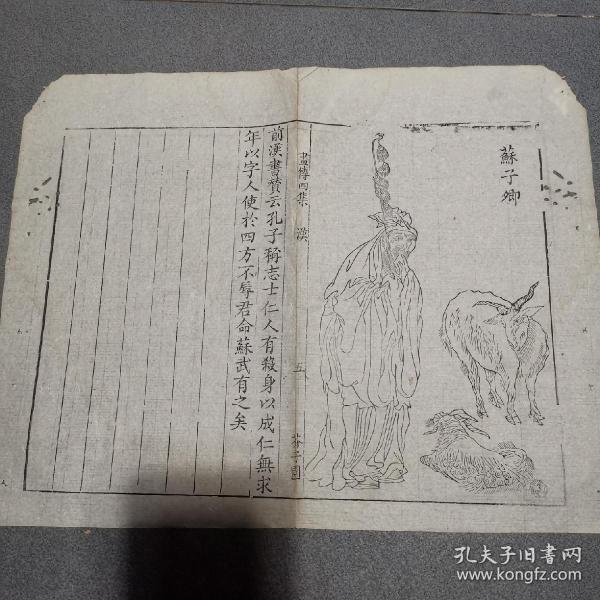 蘇子卿
畫傳四集
漢
五
芥子園
前漢書贊云孔子稱志士仁人有殺身以成仁無求
年以字人使於四方不辱君命蘇武有之矣
孔夫子旧书网
www.kongfz.com